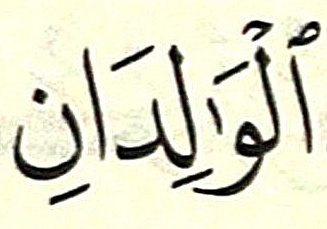 ٱلْوَٰلِدَانِ